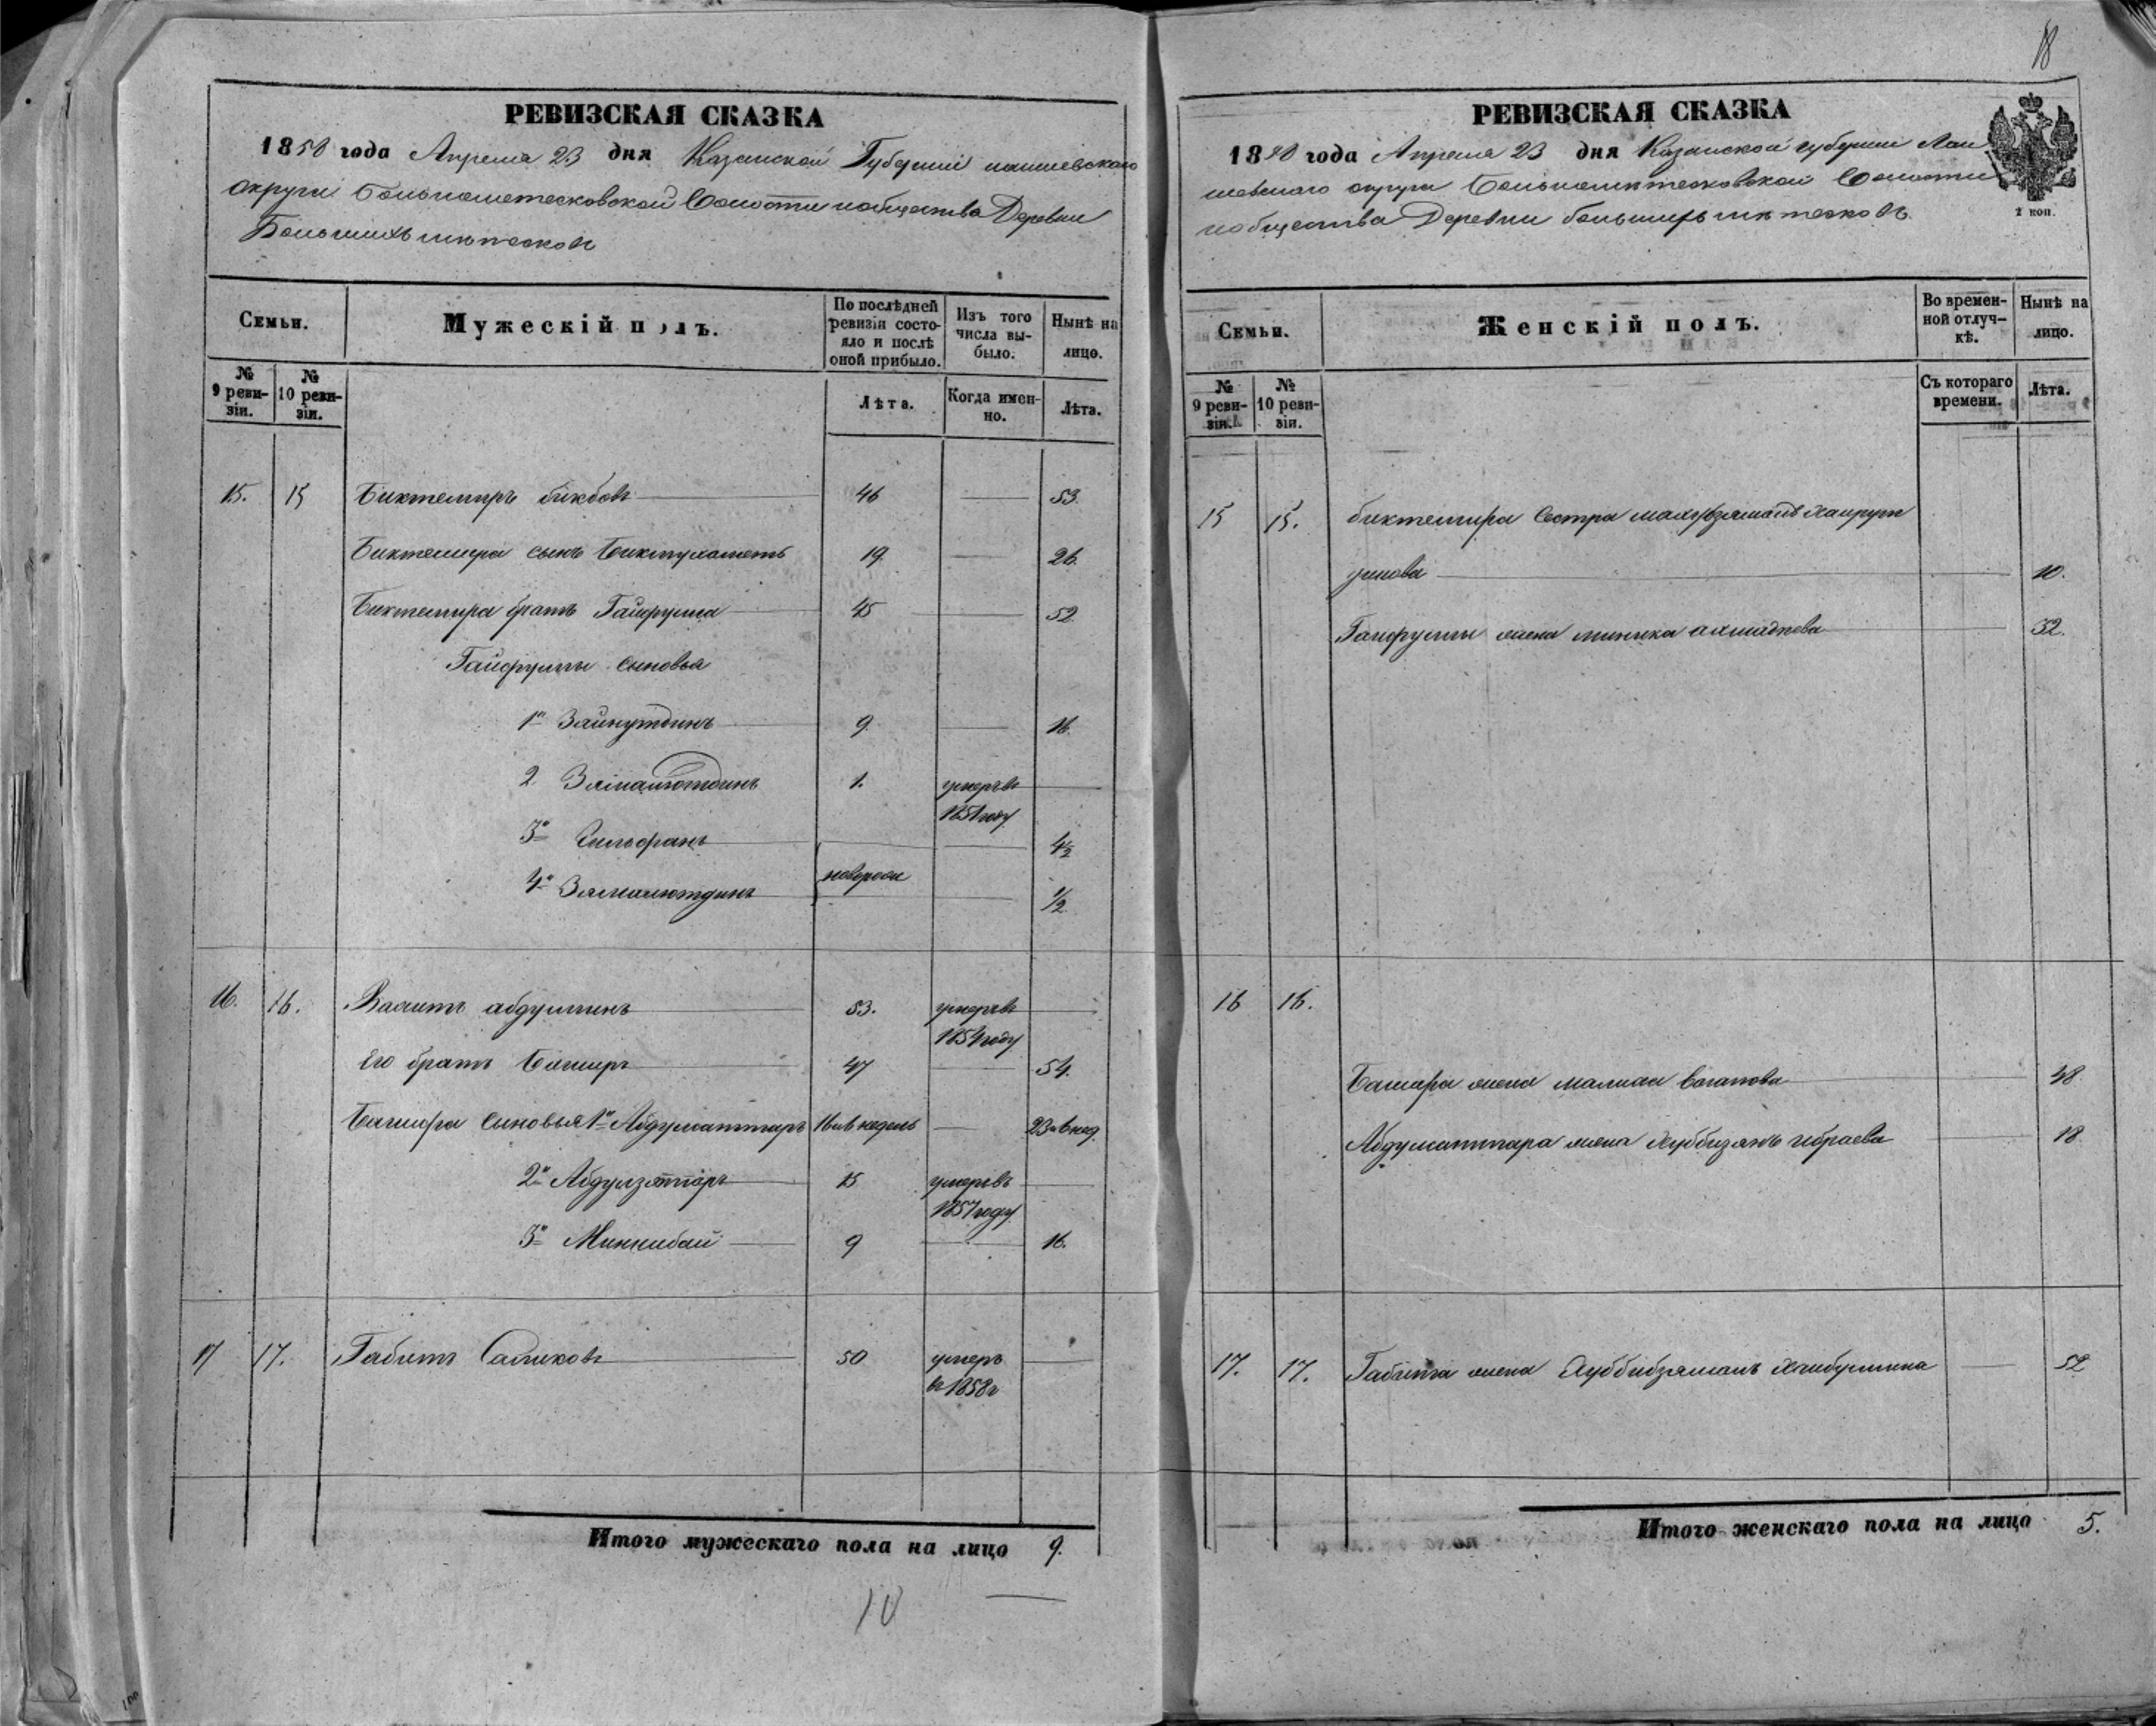 18
РЕВИЗСКАЯ СКАЗКА
1858 года Апреля 23 дня Казанской Губернии лаишевскаго
округи Большеметесковской Волости и общества Деревни
Большихъ метесковъ
Семьи.
Мужескій полъ.
По послѣдней ревизіи состояло и послѣ оной прибыло.
Изъ того числа выбыло.
Нынѣ на лицо.
№ 9 ревизіи.
№ 10 ревизіи.
Лѣта.
Когда именно.
Лѣта.
15. 15 Биктемиръ бикбовъ 46 53.
Биктемира сынъ Бикмухаметь 19 26.
Биктемира братъ Гайфулла 45 52.
Гайфуллы сыновья
1й Зайнутдинъ 9. 16.
2 Зямалютдинъ 1. умеръ въ
1851 году
3й 4½
новорож
4й Зямалютдинъ ½
16. 16. Вагитъ абдуллинъ 53. умеръ въ
1854 году
Его братъ Баширъ 47 54.
Башира сыновья 1й Абдулсаттаръ 16 и 6 недель 23 и 6 нед.
2й Абдулзаттаръ 15 умеръ въ
1857 году
3й Миннибай 9 16.
17 17. Габитъ Саликовъ 50 умеръ
въ 1858 г
Итого мужескаго пола на лицо 9.
10
РЕВИЗСКАЯ СКАЗКА
1858 года Апреля 23 дня Казанской губернии Лаи
шевскаго округа Большеметесковской Волости
и общества Деревни большихъ метесковъ.
2 коп.
Семьи.
Женскій полъ.
Во временной отлучкѣ.
Нынѣ на лицо.
№ 9 ревизіи.
№ 10 ревизіи.
Съ котораго времени.
Лѣта.
15 15. биктемира Сестра махубзямалъ Хайрул
линова 10.
Гайфуллы жена минника ахмадиева 32.
16 16.
Башира жена малика Вагапова 48
Абдулсаттара жена Хуббизянъ ибраева 18
17. 17. Габита жена Хуббибзямалъ Хайбуллина 52
Итого женскаго пола на лицо 5.